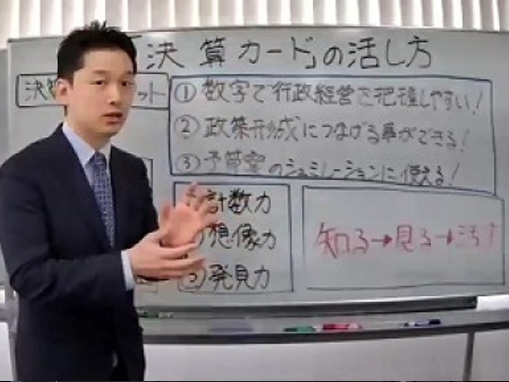 「決算カード」の活し方
決算 ット
① 数字で行政経営を把握しやすい!
② 政策形成につなげる事ができる!
③ 予算案のシュミレーションに使える!
計数力
想像力
③ 発見力
知る→見る→活